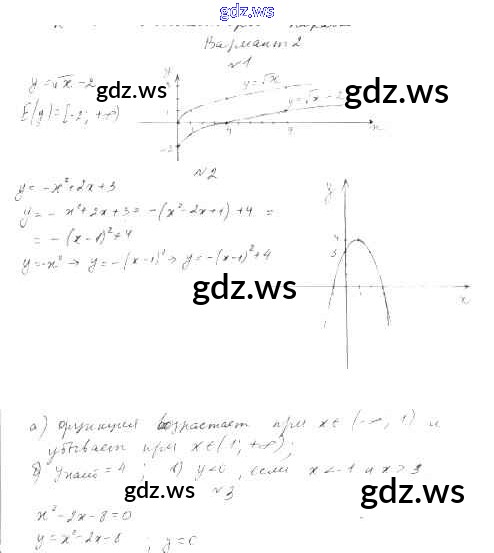 gdz.ws
Вариант 2
№1
y=√x -2
y
y=√x
gdz.ws
gdz.ws
E(y)=[-2; +∞)
y=√x - 2
1
4
9
x
-2
№2
y=-x²+2x+3
y=- x²+2x+3=-(x²-2x+1)+4 =
= -(x-1)²+4
y=-x² → y=-(x-1)² → y=-(x-1)²+4
y
4
3
1
x
gdz.ws
а) функция возрастает при x∈(-∞, 1) и
убывает при x∈(1; +∞);
б) yнаиб = 4; в) y<0, если x<-1 и x>3
gdz.ws
№3
gdz.ws
x²-2x-8=0
y=x²-2x-8 ; y=0